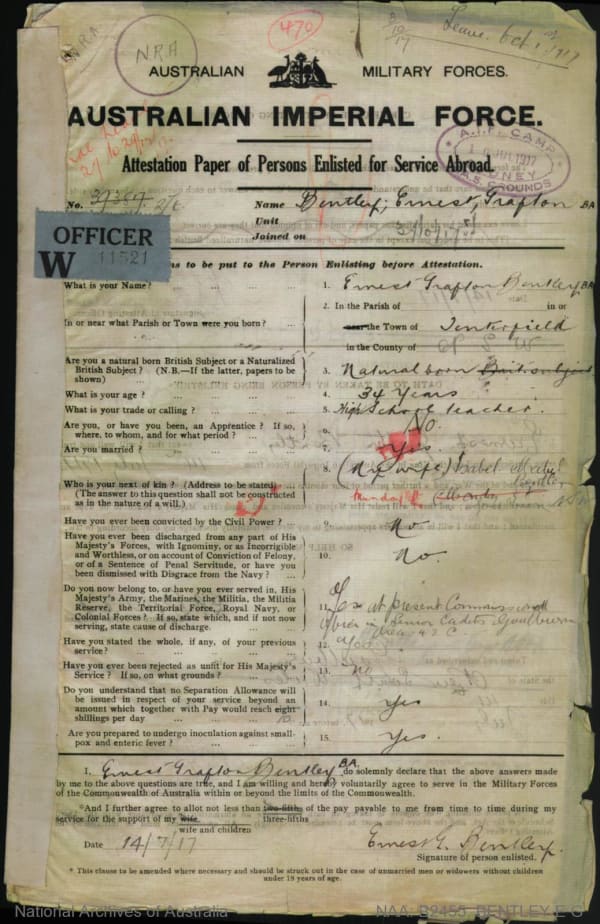 470
2/10/17
Leave. Oct 1917
N.R.A
NRA
AUSTRALIAN MILITARY FORCES.
AUSTRALIAN IMPERIAL FORCE.
A.I.F. CAMP
JUL 1917
SYDNEY
R.A.S. GROUNDS
Attestation Paper of Persons Enlisted for Service Abroad.
No. Name Bentley, Ernest, Grafton BA
Unit
Joined on
OFFICER
W 11521
ns to be put to the Person Enlisting before Attestation.
What is your Name? ... 1. Ernest Grafton Bentley BA
In or near what Parish or Town were you born? ... 2. In the Parish of in or
near the Town of Tenterfield
in the County of
Are you a natural born British Subject or a Naturalized
British Subject? (N.B.—If the latter, papers to be
shown) ... 3. Natural born
What is your age? ... 4. 34 Years
What is your trade or calling? ... 5. High School teacher.
Are you, or have you been, an Apprentice? If so,
where, to whom, and for what period? ... 6. No.
Are you married? ... 7. Yes.
Who is your next of kin? (Address to be stated) ... 8. (My wife) Isabel Mabel
Bentley
(The answer to this question shall not be constructed
as in the nature of a will.)
Have you ever been convicted by the Civil Power? 9. No
Have you ever been discharged from any part of His
Majesty's Forces, with Ignominy, or as Incorrigible
and Worthless, or on account of Conviction of Felony,
or of a Sentence of Penal Servitude, or have you
been dismissed with Disgrace from the Navy? ... 10. No.
Do you now belong to, or have you ever served in, His
Majesty's Army, the Marines, the Militia, the Militia
Reserve, the Territorial Force, Royal Navy, or
Colonial Forces? If so, state which, and if not now
serving, state cause of discharge. 11. Yes at present Commissioned
officer in Senior Cadets Goulburn
Area 42 C
Have you stated the whole, if any, of your previous
service? ... 12. Yes.
Have you ever been rejected as unfit for His Majesty's
Service? If so, on what grounds? ... 13. no
Do you understand that no Separation Allowance will
be issued in respect of your service beyond an
amount which together with Pay would reach eight
shillings per day ... 10. 14. yes
Are you prepared to undergo inoculation against small-
pox and enteric fever? ... 15. Yes.
I, Ernest Grafton Bentley BA do solemnly declare that the above answers made
by me to the above questions are true, and I am willing and hereby voluntarily agree to serve in the Military Forces
of the Commonwealth of Australia within or beyond the limits of the Commonwealth.
*And I further agree to allot not less than two-fifths of the pay payable to me from time to time during my
three-fifths
service for the support of my wife.
wife and children
Date 14/7/17 Ernest G. Bentley.
Signature of person enlisted.
* This clause to be amended where necessary and should be struck out in the case of unmarried men or widowers without children
under 18 years of age.
National Archives of Australia NAA: B2455, BENTLEY E G